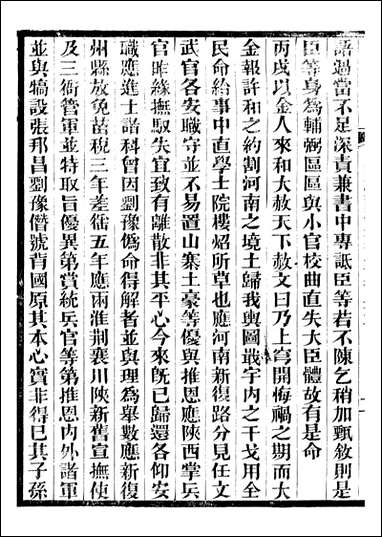 語過當不足深責兼書中專詆臣等若不陳乞稍加甄敘則是
臣等身為輔弼區區與小官校曲直失大臣體故有是命
丙戌以金人來和大赦天下赦文曰乃上穹開悔禍之期而大
金報許和之約割河南之境土歸我輿圖戢宇內之干戈用全
民命給事中直學士院樓炤所草也應河南新復路分見任文
武官各安職守並不易置山寨土豪等優與推恩應陝西掌兵
官昨緣撫馭失宜致有離散非其平心今來旣已歸還各仰安
職應進士諸科曾因劉豫僞命得解者並與理為舉數應新復
州縣放免苗稅三年差徭五年應兩淮荆襄川陝新舊宣撫使
及三衙管軍並特取旨優異第賞統兵官等第推恩內外諸軍
並與犒設張邦昌劉豫僭號背國原其本心實非得已其子孫